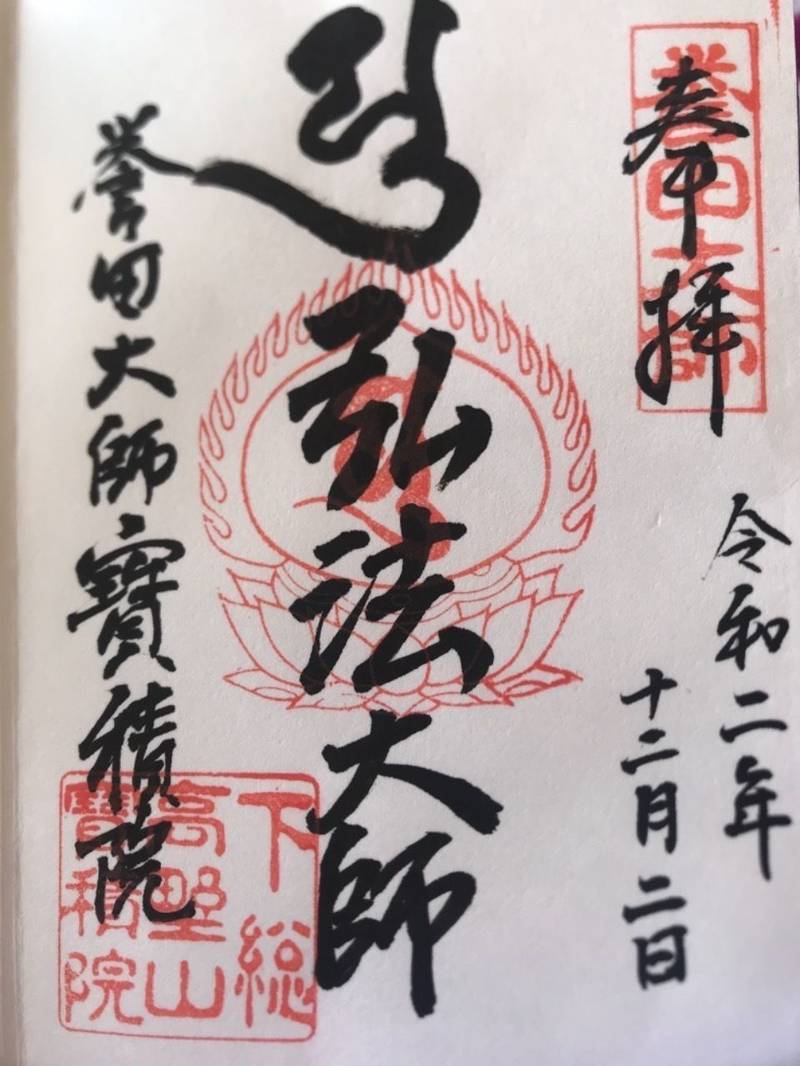 奉拝
誉田大師
令和二年
十二月二日
弘法大師
誉田大師寶積院
下総
高野山
寶積院